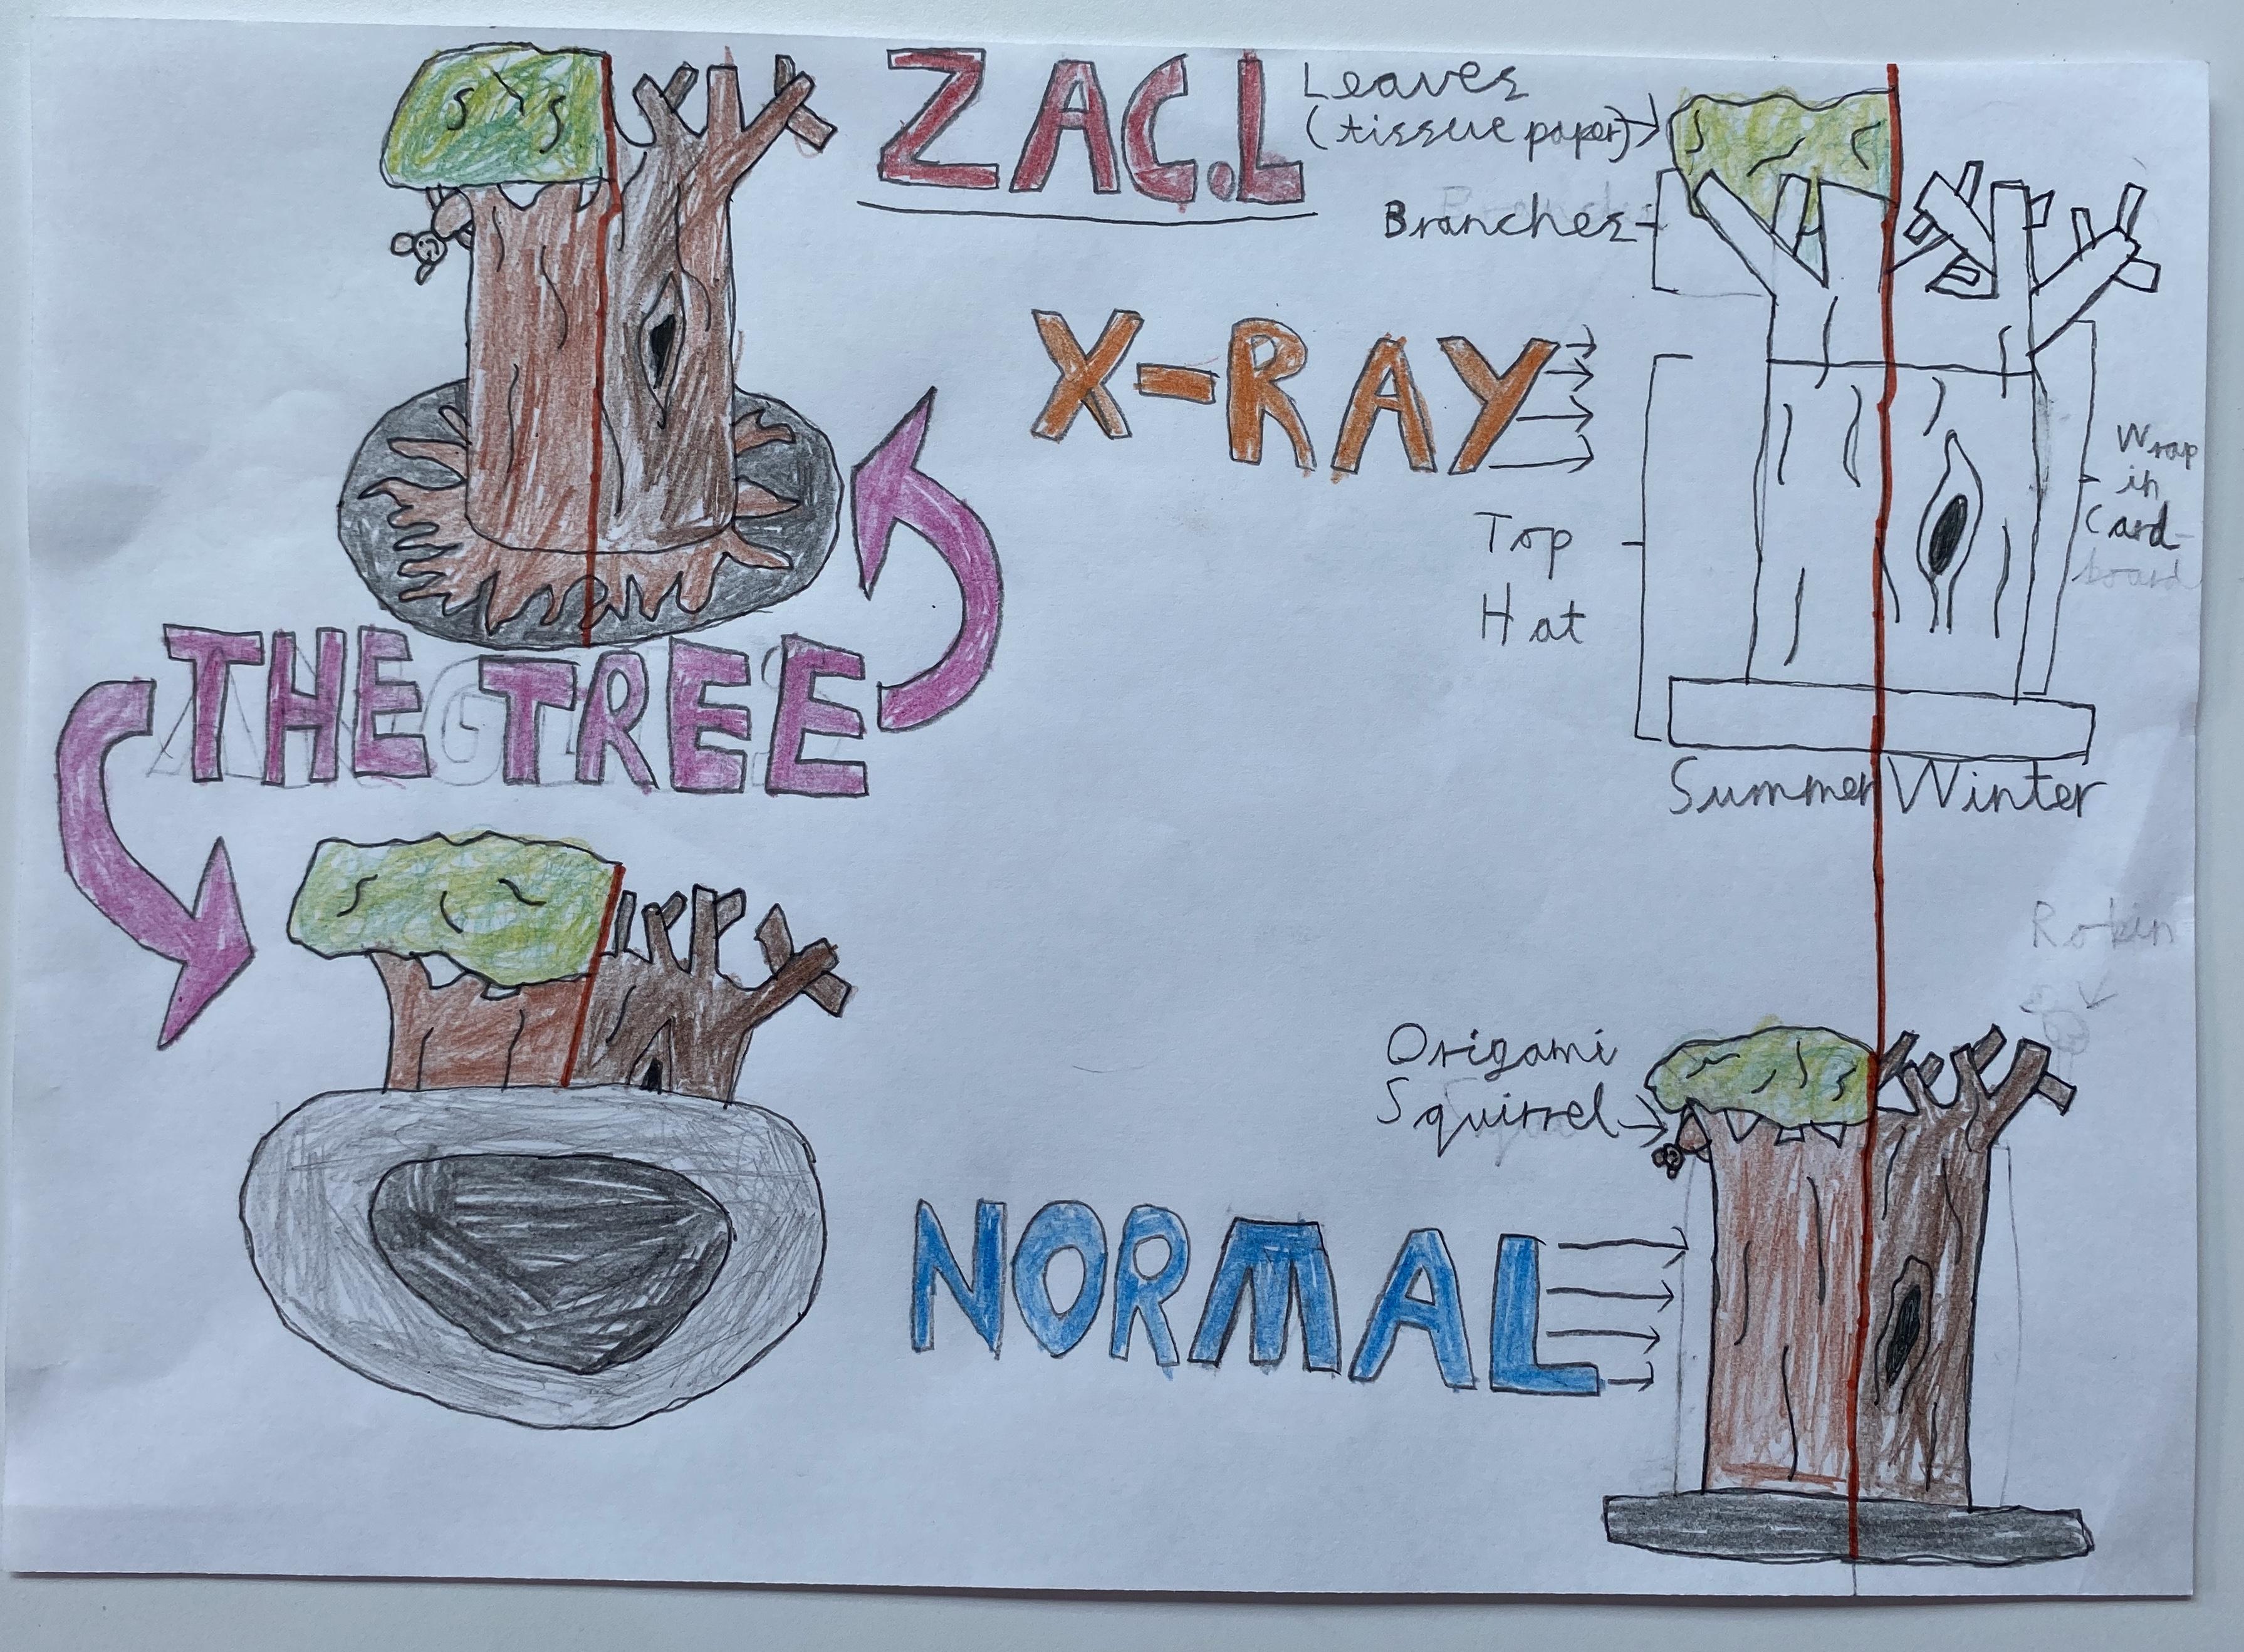 ZAC.L
Leaves
(tissue paper)
Branches
X-RAY
Top
Hat
Wrap
in
Card-
board
Summer Winter
THE TREE
Robin
Origami
Squirrel
NORMAL